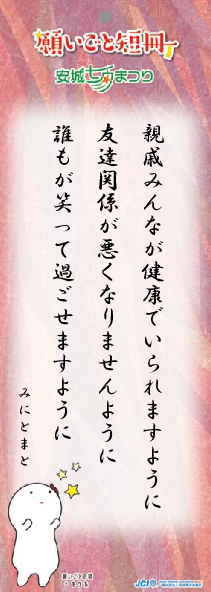 願いごと短冊
安城七夕まつり
親戚みんなが健康でいられますように
友達関係が悪くなりませんように
誰もが笑って過ごせますように
みにとまと
願いごと妖精
JCI